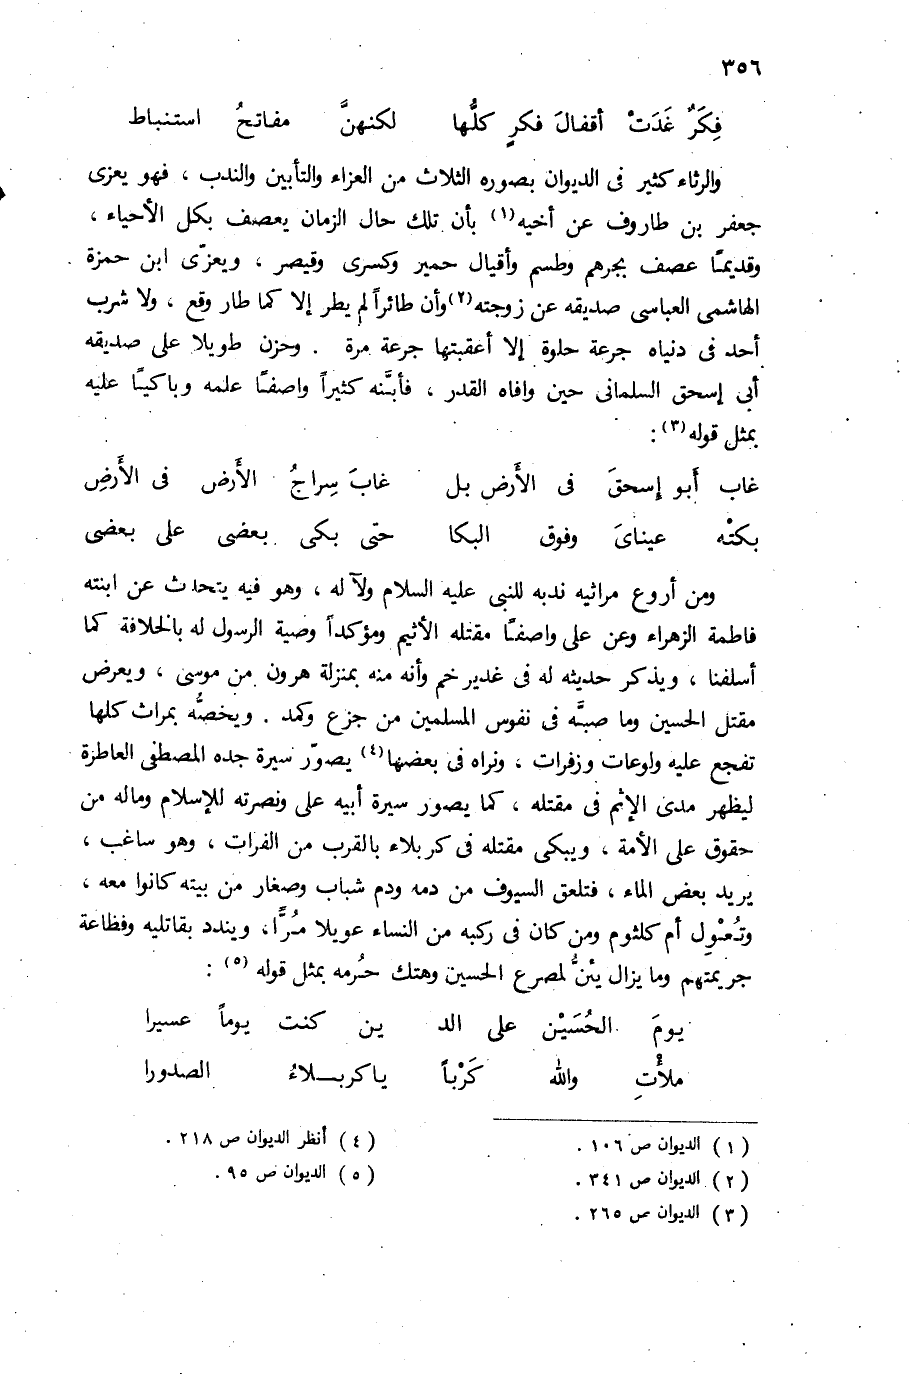 ٣٥٦
فِكَرٌ غَدَتْ أقفالَ فكرٍ كلُّها لكنهنَّ مفاتحُ استنباط
والرثاء كثير فى الديوان بصوره الثلاث من العزاء والتأبين والندب ، فهو يعزى
جعفر بن طاروف عن أخيه(١) بأن تلك حال الزمان يعصف بكل الأحياء ،
وقديمًا عصف بجرهم وطسم وأقيال حمير وكسرى وقيصر ، ويعزّى ابن حمزة
الهاشمى العباسى صديقه عن زوجته(٢) وأن طائراً لم يطر إلا كما طار وقع ، ولا شرب
أحد فى دنياه جرعة حلوة إلا أعقبتها جرعة مرة . وحزن طويلا على صديقه
أبى إسحق السلمانى حين وافاه القدر ، فأبَّنه كثيراً واصفًا علمه وباكيًا عليه
بمثل قوله(٣) :
غاب أَبو إسحقَ فى الأَرض بل غابَ سِراجُ الأَرض فى الأَرضِ
بكتْه عينایَ وفوق البكا حتى بكى بعضى على بعضى
ومن أروع مراثيه ندبه للنبى عليه السلام ولآله ، وهو فيه يتحدث عن ابنته
فاطمة الزهراء وعن على واصفًا مقتله الأثيم ومؤكداً وصية الرسول له بالخلافة كما
أسلفنا ، ويذكر حديثه له فى غدير خم وأنه منه بمنزلة هرون من موسى ، ويعرض
مقتل الحسين وما صبَّه فى نفوس المسلمين من جزع وكمد . ويخصُّه بمراث كلها
تفجع عليه ولوعات وزفرات ، ونراه فى بعضها(٤) يصوّر سيرة جده المصطفى العاطرة
ليظهر مدى الإثم فى مقتله ، كما يصور سيرة أبيه على ونصرته للإسلام وماله من
حقوق على الأمة ، ويبكى مقتله فى كربلاء بالقرب من الفرات ، وهو ساغب ،
يريد بعض الماء ، فتلعق السيوف من دمه ودم شباب وصغار من بيته كانوا معه ،
وتُعْوِل أم كلثوم ومن كان فى ركبه من النساء عويلا مُرًّا، ويندد بقاتليه وفظاعة
جريمتهم وما يزال يئنُّ لمصرع الحسين وهتك حُرمه بمثل قوله (٥) :
يومَ الحُسَيْن على الد ين كنت يوماً عسيرا
ملأْتِ والله كَرْباً ياكربلاءُ الصدورا
(١) الديوان ص ١٠٦ .
(٢) الديوان ص ٣٤١ .
(٣) الديوان ص ٢٦٥ .
(٤) أنظر الديوان ص ٢١٨ .
(٥) الديوان ص ٩٥ .